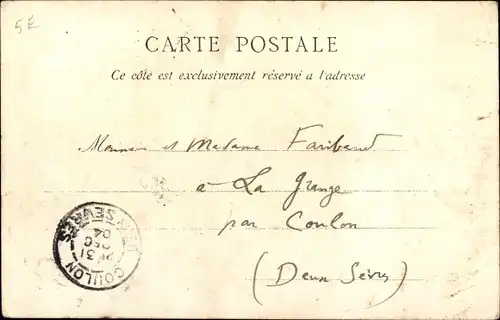 5E
CARTE POSTALE
Ce côte est exclusivement réservé a l'adresse
Monsieur et Madame Faribaud
a La Grange
par Coulon
(Deux Sèvres)
COULON
31
DEC
04
DEUX SEVRES